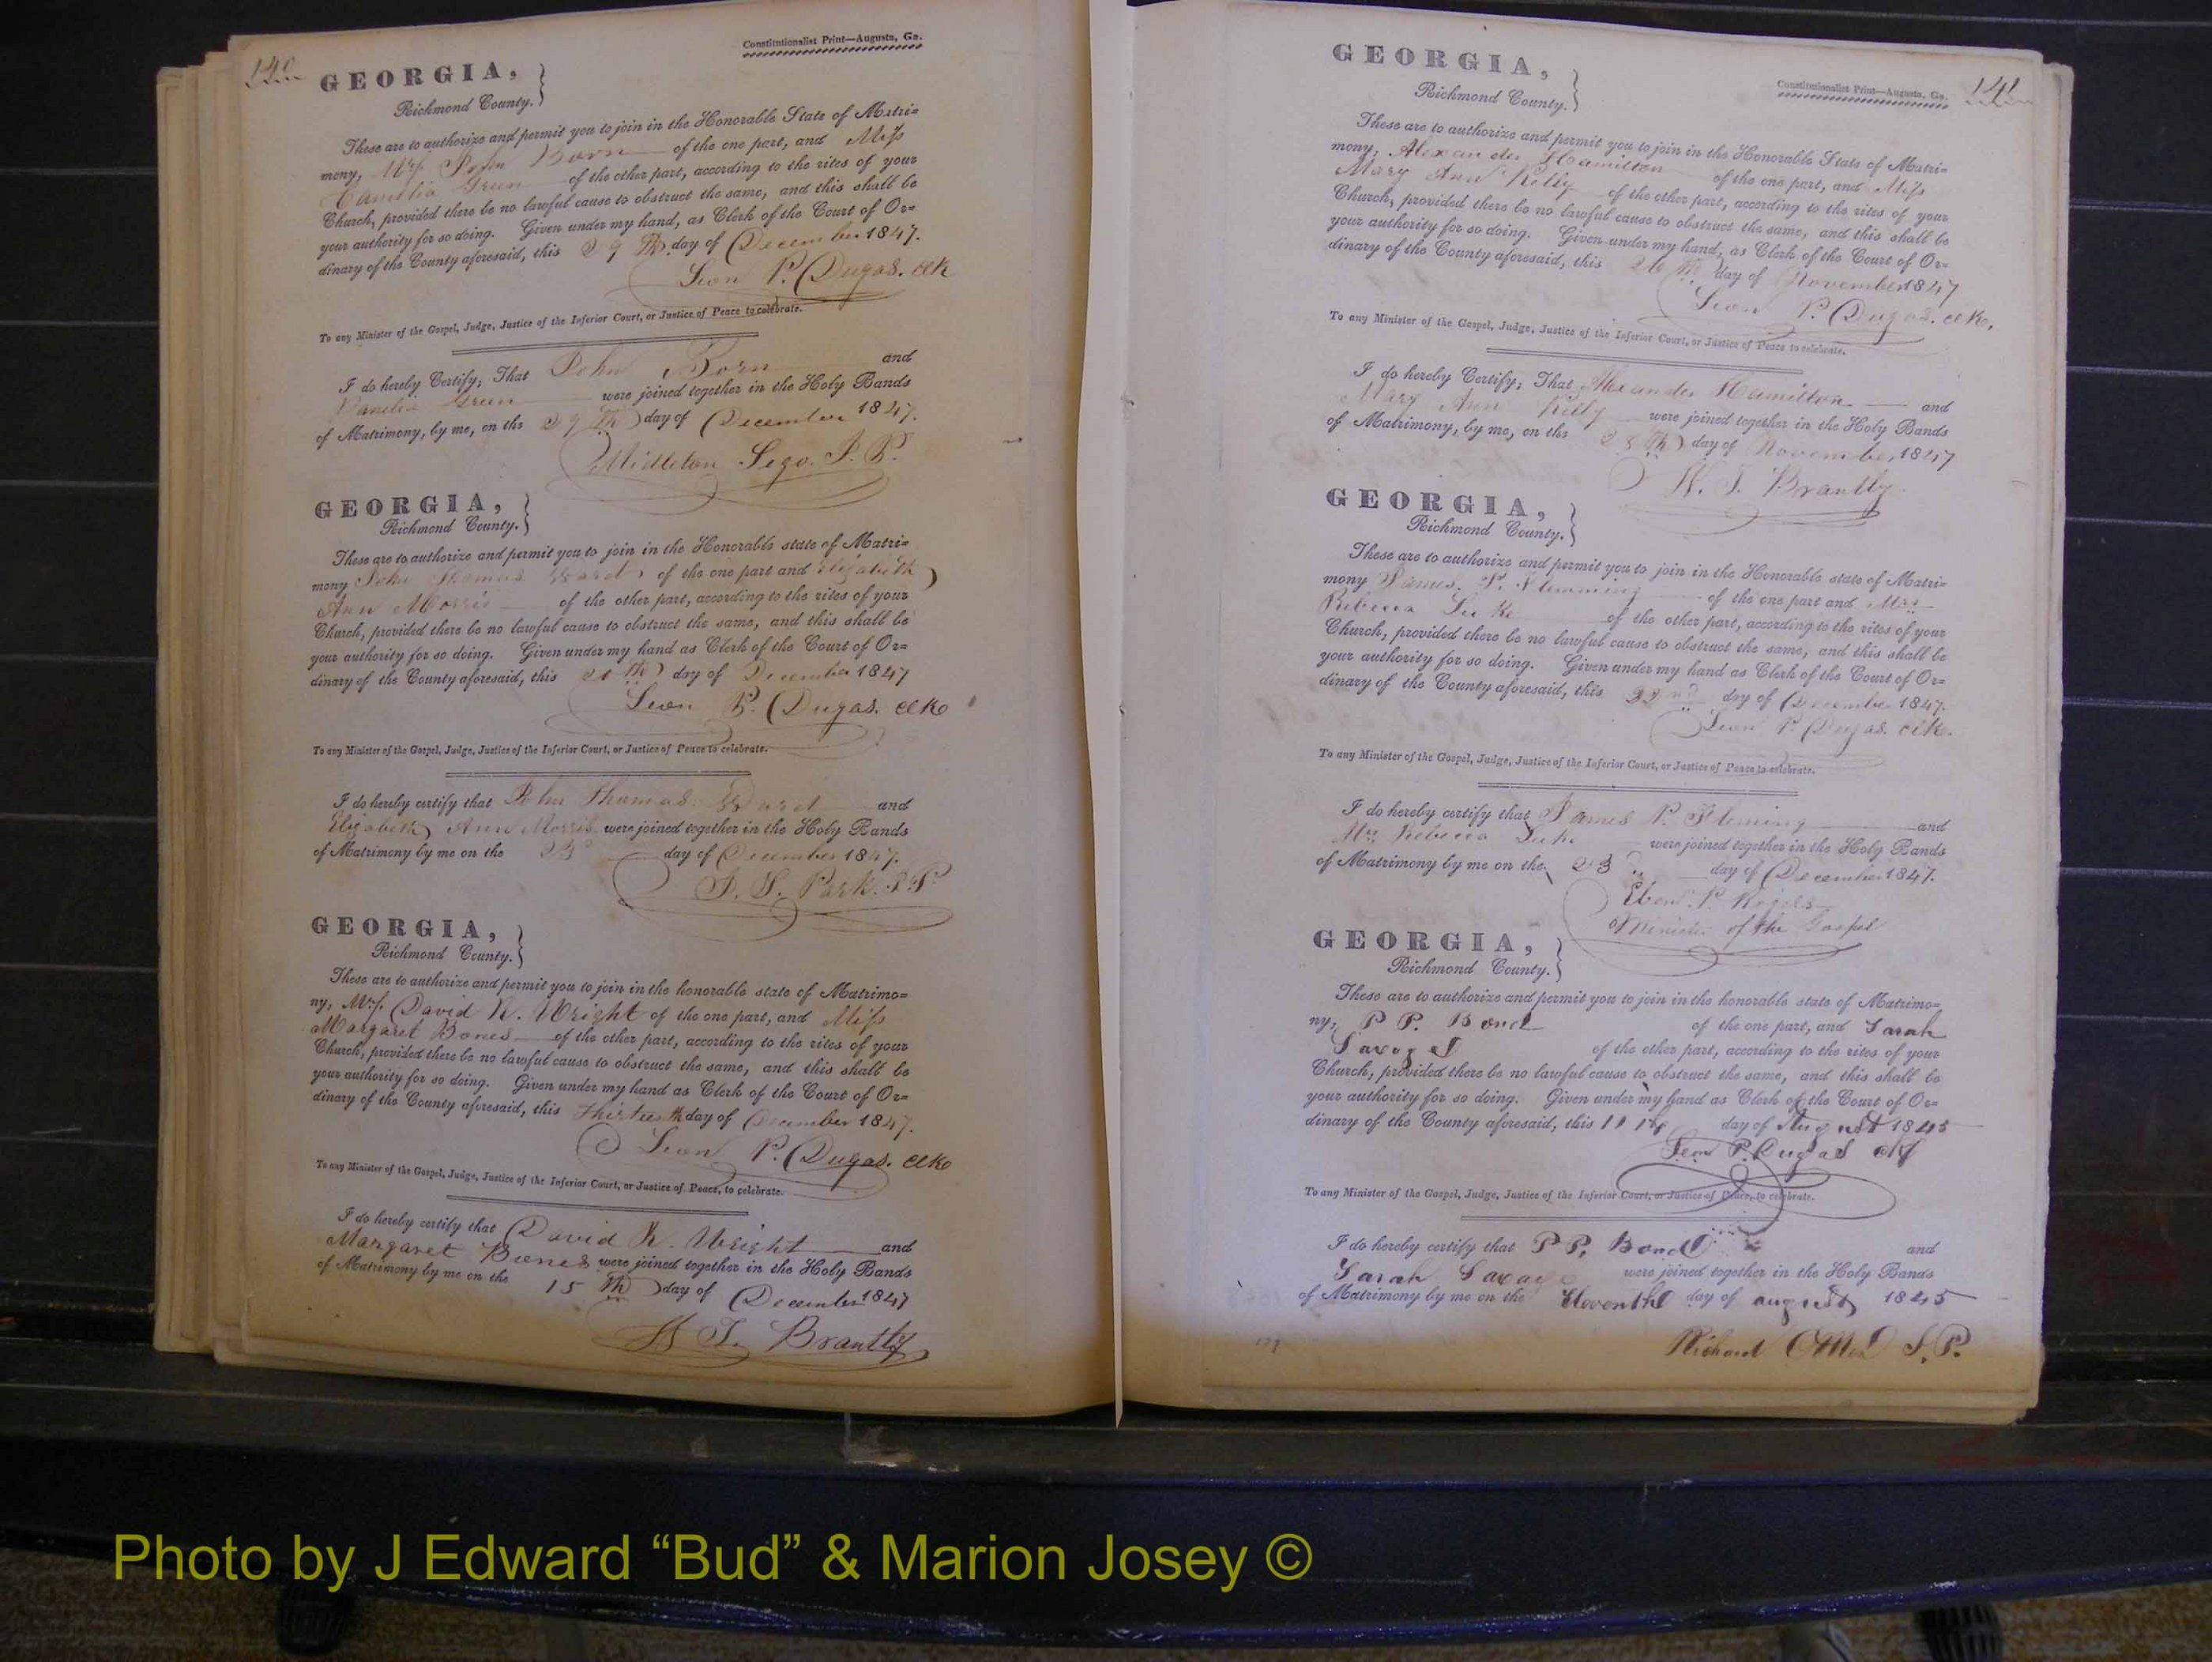 140
Constitutionalist Print—Augusta, Ga.
GEORGIA,
Richmond County.
These are to authorize and permit you to join in the Honorable State of Matri=
mony, Mr. John Born of the one part, and Miss
Green of the other part, according to the rites of your
Church, provided there be no lawful cause to obstruct the same, and this shall be
your authority for so doing. Given under my hand, as Clerk of the Court of Or=
dinary of the County aforesaid, this 29th day of December 1847.
Leon P. Dugas. clk
To any Minister of the Gospel, Judge, Justice of the Inferior Court, or Justice of Peace to celebrate.
I do hereby Certify, That John Born and
Green were joined together in the Holy Bands
of Matrimony, by me, on the 29th day of December 1847.
Middleton Sego. J. P.
GEORGIA,
Richmond County.
These are to authorize and permit you to join in the Honorable state of Matri=
mony John Thomas Ward of the one part and Elizabeth
Ann Morris of the other part, according to the rites of your
Church, provided there be no lawful cause to obstruct the same, and this shall be
your authority for so doing. Given under my hand as Clerk of the Court of Or=
dinary of the County aforesaid, this th day of December 1847
Leon P. Dugas. clk
To any Minister of the Gospel, Judge, Justice of the Inferior Court, or Justice of Peace to celebrate.
I do hereby certify that John Thomas Ward and
Elizabeth Ann Morris were joined together in the Holy Bands
of Matrimony by me on the day of December 1847.
Park. J. P.
GEORGIA,
Richmond County.
These are to authorize and permit you to join in the honorable state of Matrimo=
ny, Mr. David R. Wright of the one part, and Miss
Margaret Bones of the other part, according to the rites of your
Church, provided there be no lawful cause to obstruct the same, and this shall be
your authority for so doing. Given under my hand as Clerk of the Court of Or=
dinary of the County aforesaid, this day of December 1847.
Leon P. Dugas. clk
To any Minister of the Gospel, Judge, Justice of the Inferior Court, or Justice of Peace, to celebrate.
I do hereby certify that David R. Wright and
Margaret Bones were joined together in the Holy Bands
of Matrimony by me on the 15th day of December 1847
Brantly
141
Constitutionalist Print—Augusta, Ga.
GEORGIA,
Richmond County.
These are to authorize and permit you to join in the Honorable State of Matri=
mony, Alexander Hamilton of the one part, and Miss
Mary Ann Kelly of the other part, according to the rites of your
Church, provided there be no lawful cause to obstruct the same, and this shall be
your authority for so doing. Given under my hand, as Clerk of the Court of Or=
dinary of the County aforesaid, this 26th day of November 1847
Leon P. Dugas. clk.
To any Minister of the Gospel, Judge, Justice of the Inferior Court, or Justice of Peace to celebrate.
I do hereby Certify, That Alexander Hamilton and
Mary Ann Kelly were joined together in the Holy Bands
of Matrimony, by me, on the day of November 1847
Brantly
GEORGIA,
Richmond County.
These are to authorize and permit you to join in the Honorable state of Matri=
mony James P. Flemming of the one part and Mrs
Rebecca of the other part, according to the rites of your
Church, provided there be no lawful cause to obstruct the same, and this shall be
your authority for so doing. Given under my hand as Clerk of the Court of Or=
dinary of the County aforesaid, this 22nd day of December 1847.
Leon P. Dugas. clk.
To any Minister of the Gospel, Judge, Justice of the Inferior Court, or Justice of Peace to celebrate.
I do hereby certify that James P. Fleming and
Mrs Rebecca were joined together in the Holy Bands
of Matrimony by me on the 23 day of December 1847.
Eben. P. Rogers
Minister of the Gospel
GEORGIA,
Richmond County.
These are to authorize and permit you to join in the honorable state of Matrimo=
ny, P P. Bond of the one part, and Sarah
Savage of the other part, according to the rites of your
Church, provided there be no lawful cause to obstruct the same, and this shall be
your authority for so doing. Given under my hand as Clerk of the Court of Or=
dinary of the County aforesaid, this 11th day of August 1845
Leon P. Dugas clk
To any Minister of the Gospel, Judge, Justice of the Inferior Court, or Justice of Peace, to celebrate.
I do hereby certify that P P. Bond and
Sarah Savage were joined together in the Holy Bands
of Matrimony by me on the Eleventh day of august 1845
Richard J. P.
Photo by J Edward “Bud” & Marion Josey ©